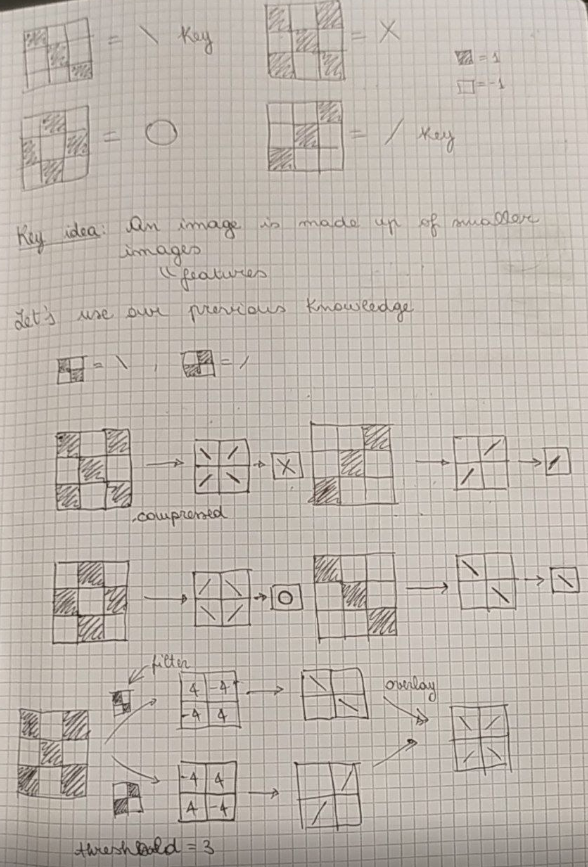 = \ Key
= X
▨ = 1
□ = -1
= O
= / Key
Key idea: An image is made up of smaller
images
↳ features
Let's use our previous knowledge
= \ , = /
\ / X
/ \
/ /
/
compressed
/ \ O
\ /
\ \
\
filter
4 -4
-4 4
\
\
overlay
\ /
/ \
-4 4
4 -4
/
/
threshold = 3